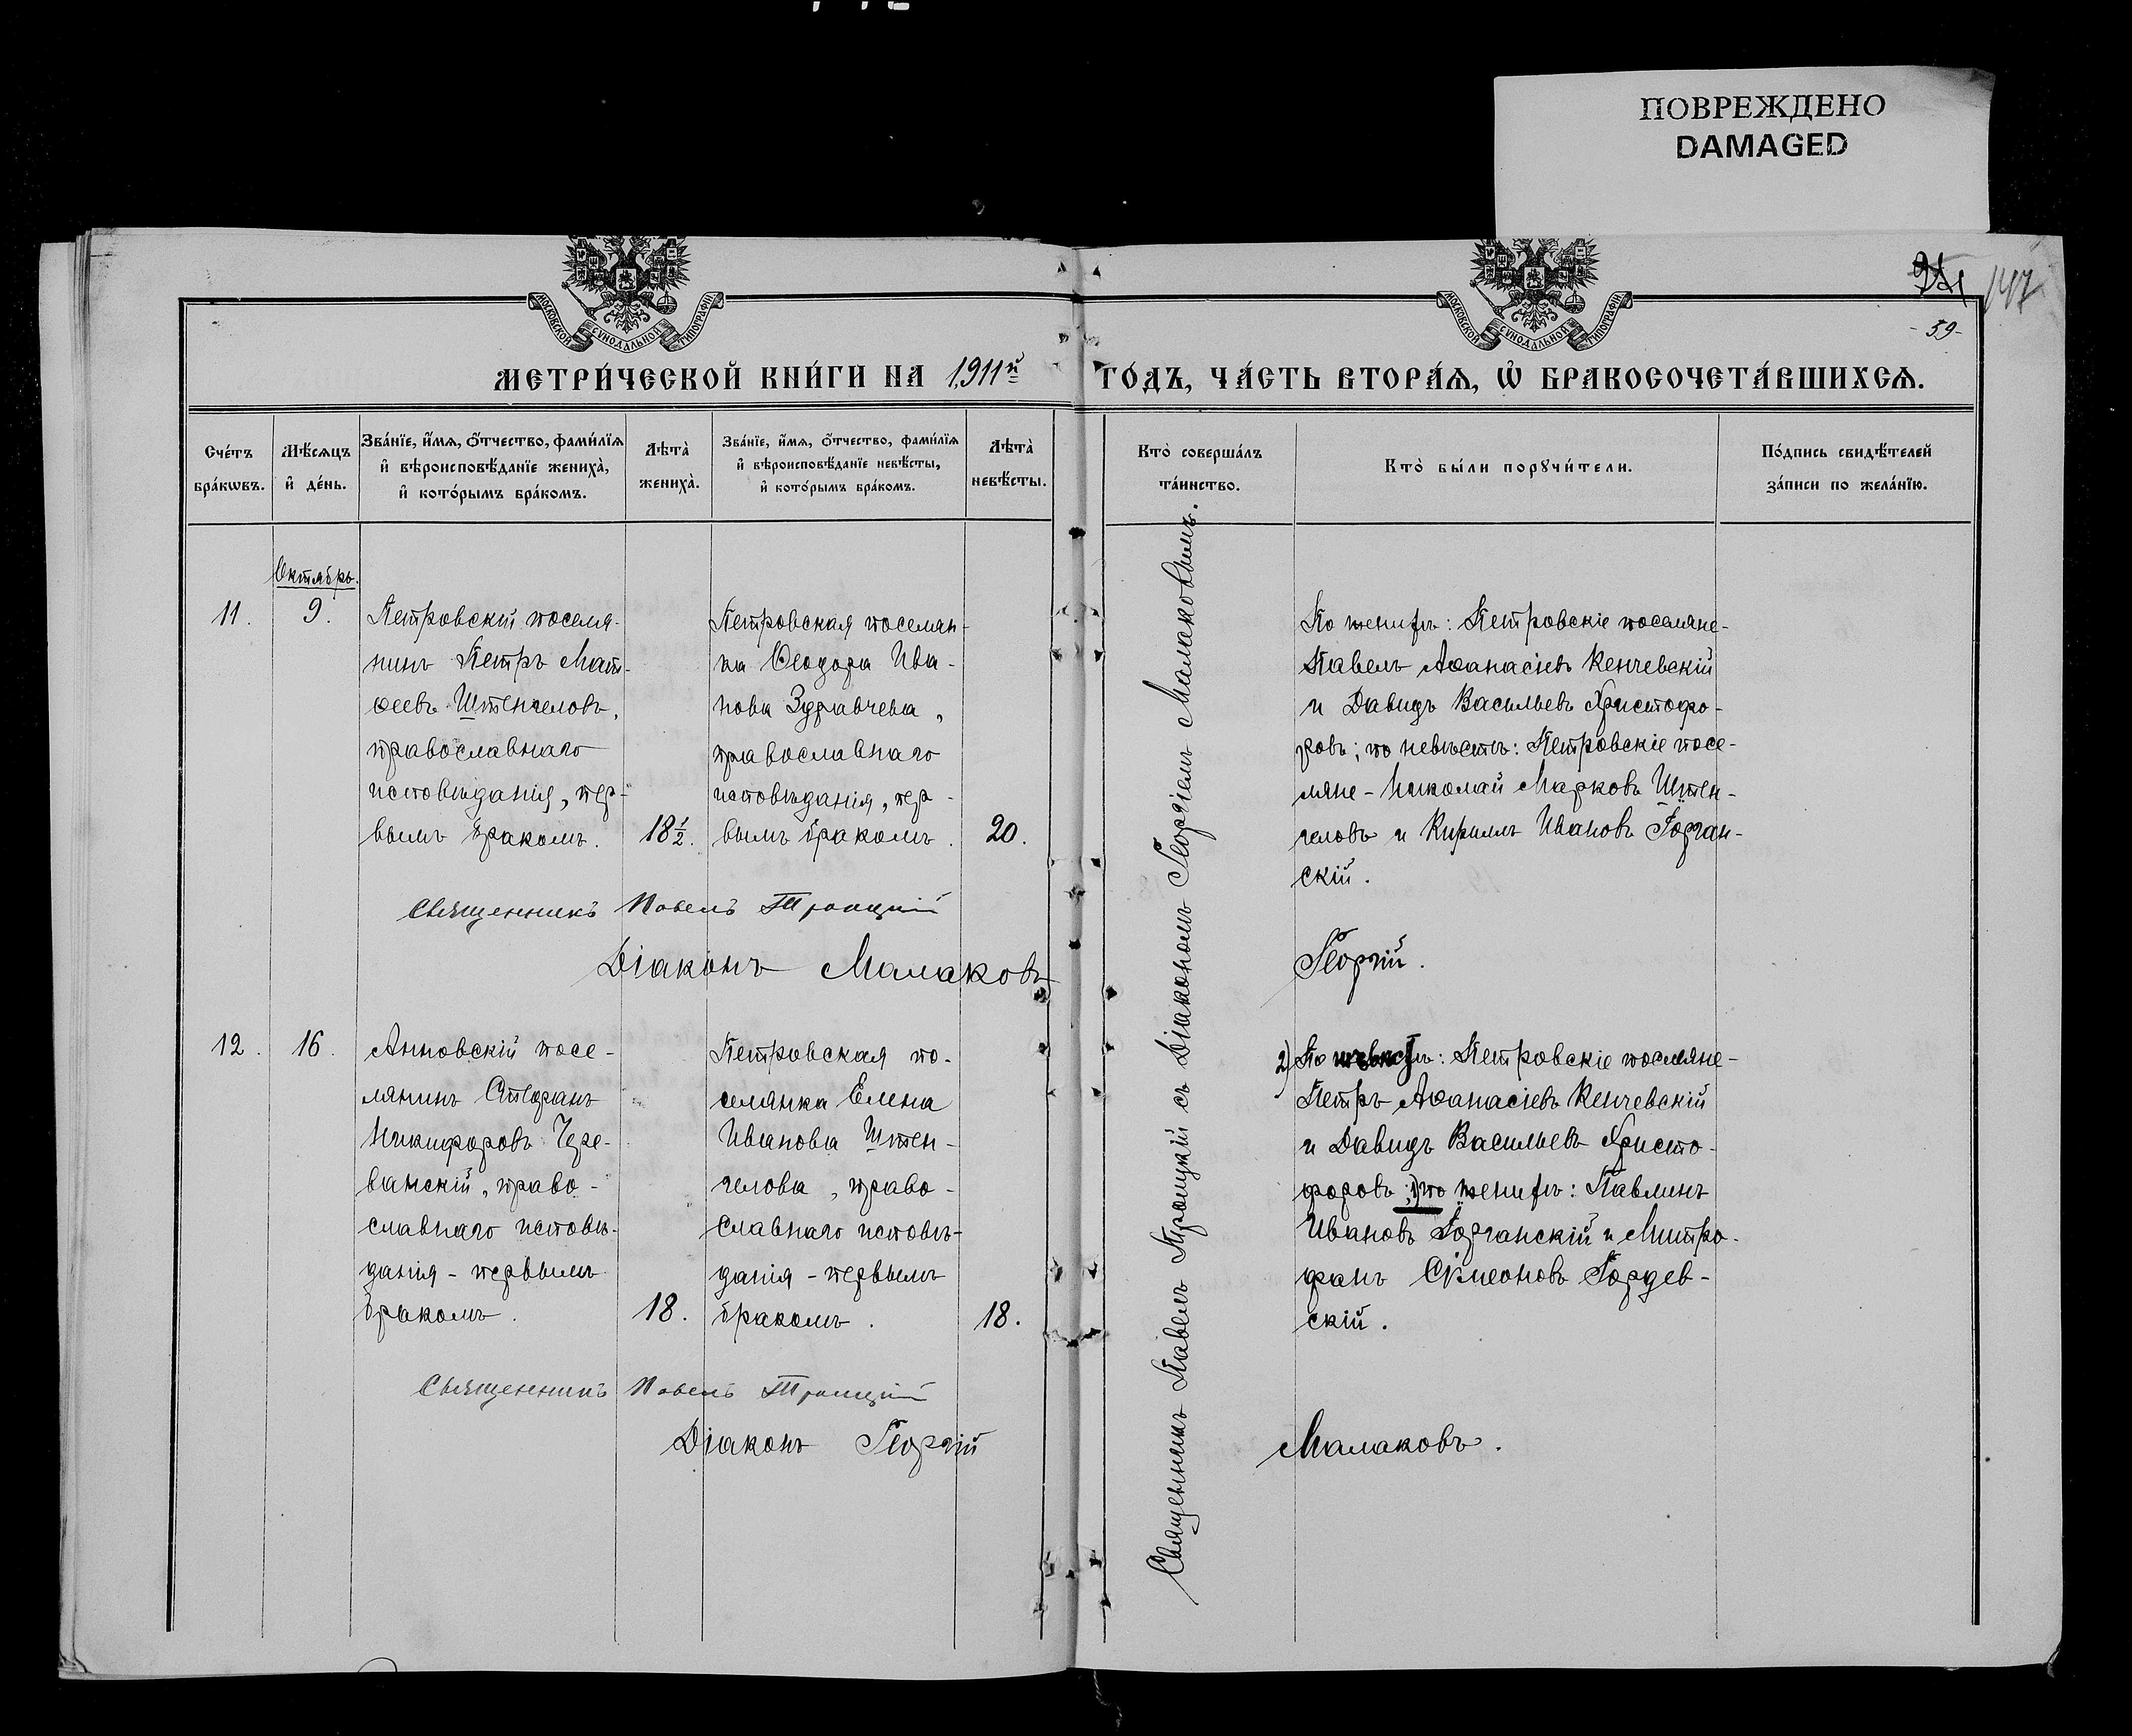 ПОВРЕЖДЕНО
DAMAGED
147
- 59 -
МОСКОВСКОЙ СѴНОДАЛЬНОЙ ТИПОГРАФІИ
МОСКОВСКОЙ СѴНОДАЛЬНОЙ ТИПОГРАФІИ
МЕТРИ́ЧЕСКОЙ КНИ́ГИ НА 1911й ГО́ДЪ, ЧА́СТЬ ВТОРА́Ѧ, Ѡ҆ БРАКОСОЧЕТА́ВШИХСѦ.
Сче́тъ бра́кѡвъ.
Мѣ́сѧцъ и҆ де́нь.
Зва́нїе, и҆́мѧ, ѻ҆́тчество, фами́лїѧ
и҆ вѣроисповѣ́данїе жениха̀,
и҆ кото́рымъ бра́комъ.
Лѣта̀ жениха̀.
Зва́нїе, и҆́мѧ, ѻ҆́тчество, фами́лїѧ
и҆ вѣроисповѣ́данїе невѣ́сты,
и҆ кото́рымъ бра́комъ.
Лѣта̀ невѣ́сты.
Кто̀ соверша́лъ та́инство.
Кто̀ бы́ли порꙋчи́тели.
По́дпись свидѣ́телей
за́писи по жела́нїю.
Октябрь.
11.
9.
Петровскій поселя-
нинъ Петръ Мат-
ѳеевъ Штенгеловъ,
православнаго
исповѣданія, пер-
вымъ бракомъ.
18½.
Петровская поселян-
ка Ѳеодора Ива-
нова Здравчева,
православнаго
исповѣданія, пер-
вымъ бракомъ.
20.
Священникъ Павелъ Троицкій съ Діакономъ Георгіемъ Малаковымъ.
По женихѣ: Петровскіе поселяне-
Павелъ Аѳанасіевъ Кенчевскій
и Давидъ Васильевъ Христофо-
ровъ; по невѣстѣ: Петровскіе посе-
ляне - Николай Марковъ Штен-
геловъ и Кириллъ Ивановъ Горган-
скій.
Священникъ Павелъ Троицкій
Діаконъ Малаковъ
Георгій.
12.
16.
Анновскій посе-
лянинъ Стефанъ
Никифоровъ Чере-
ванскій, право-
славнаго исповѣ-
данія - первымъ
бракомъ.
18.
Петровская по-
селянка Елена
Иванова Штен-
гелова, право-
славнаго исповѣ-
данія - первымъ
бракомъ.
18.
2) По невѣстѣ: Петровскіе поселяне-
Петръ Аѳанасіевъ Кенчевскій
и Давидъ Васильевъ Христо-
форовъ; 1) по женихѣ: Павлинъ
Ивановъ Горганскій и Митро-
фанъ Сѵмеоновъ Гордев-
скій.
Священникъ Павелъ Троицкій
Діаконъ Георгій
Малаковъ.